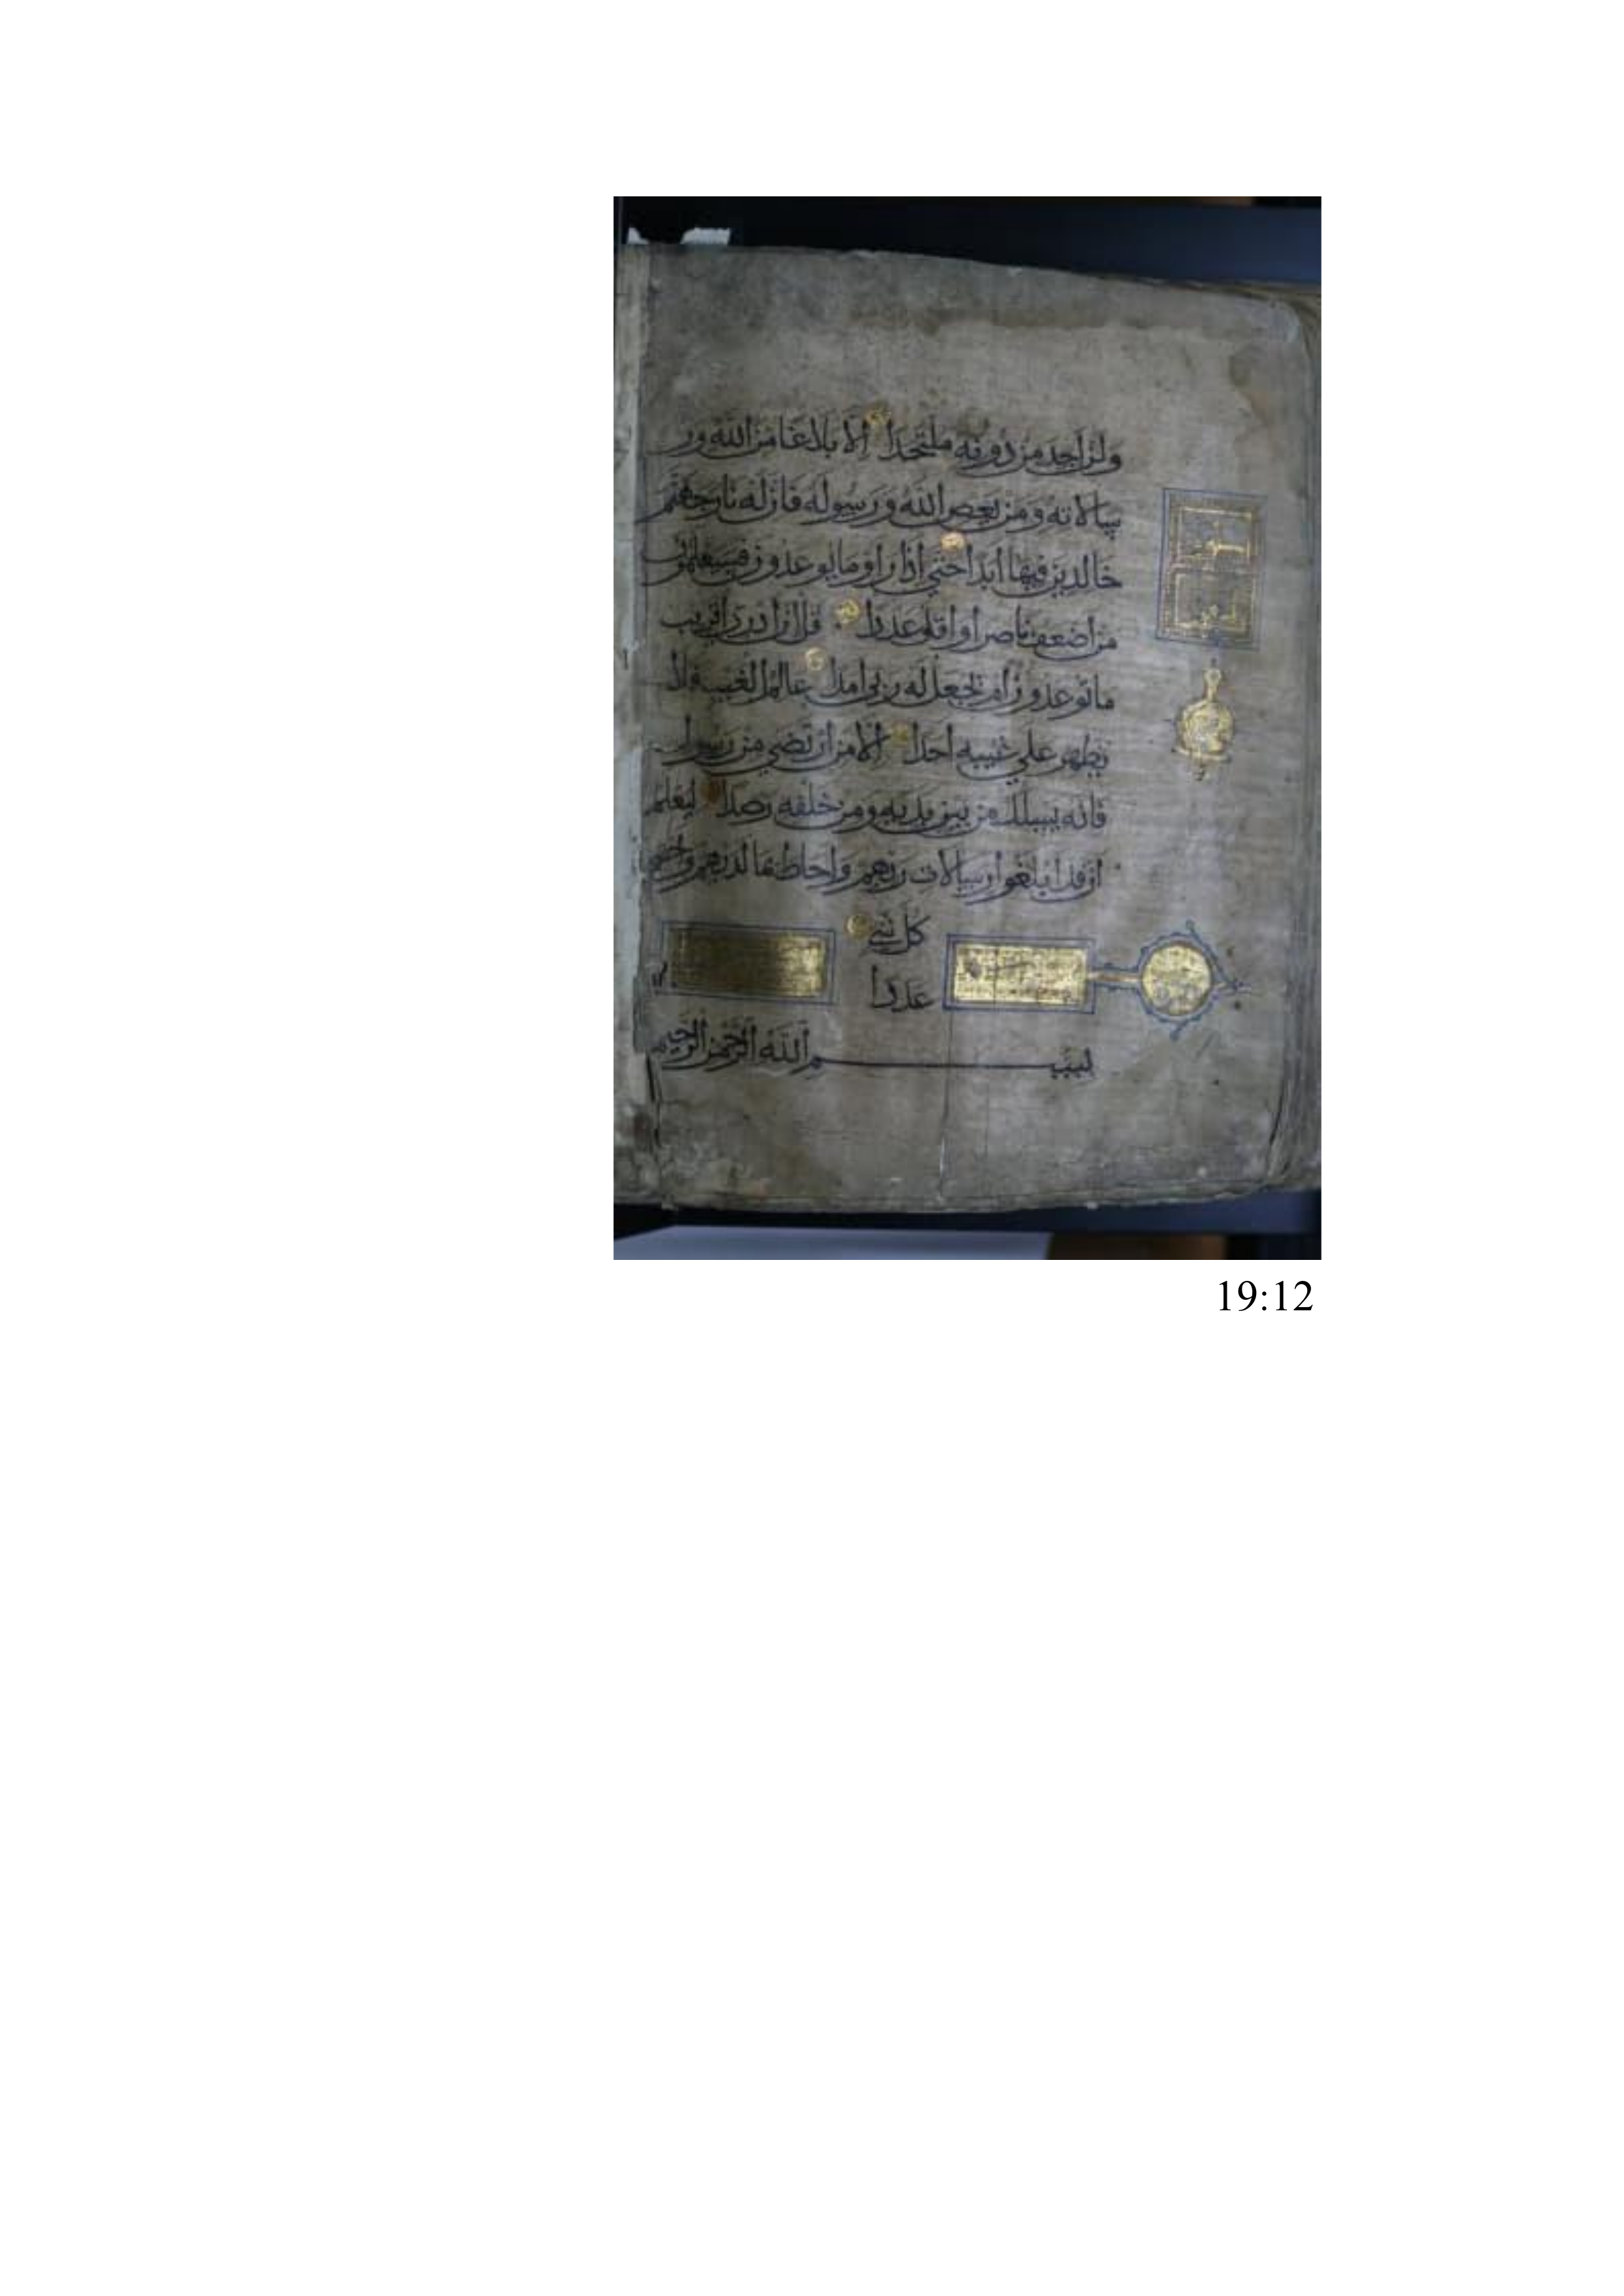 ولن اجد من دونه ملتحدا الا بلاغا من الله ور
سالاته ومن يعص الله ورسوله فان له نار جهنم
خالدين فيها ابدا حتي اذا راوا ما يوعدون فسيعلمون
من اضعف ناصرا واقل عددا قل ان ادري اقريب
ما توعدون ام يجعل له ربي امدا عالم الغيب فلا
يظهر علي غيبه احدا الا من ارتضي من رسول
فانه يسلك من بين يديه ومن خلفه رصدا ليعلم
ان قد ابلغوا رسالات ربهم واحاط بما لديهم واحصي
كل شي
عددا
بسم الله الرحمن الرحيم
19:12